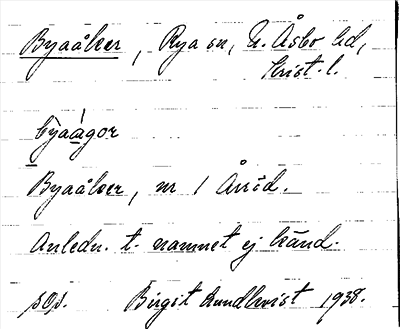 Byaåker, Rya sn, N. Åsbo hd,
Krist. l.
byaágor
Byaåker, nr 1 Årröd.
Anledn. t. namnet ej känd.
Birgit Lundkvist 1938.